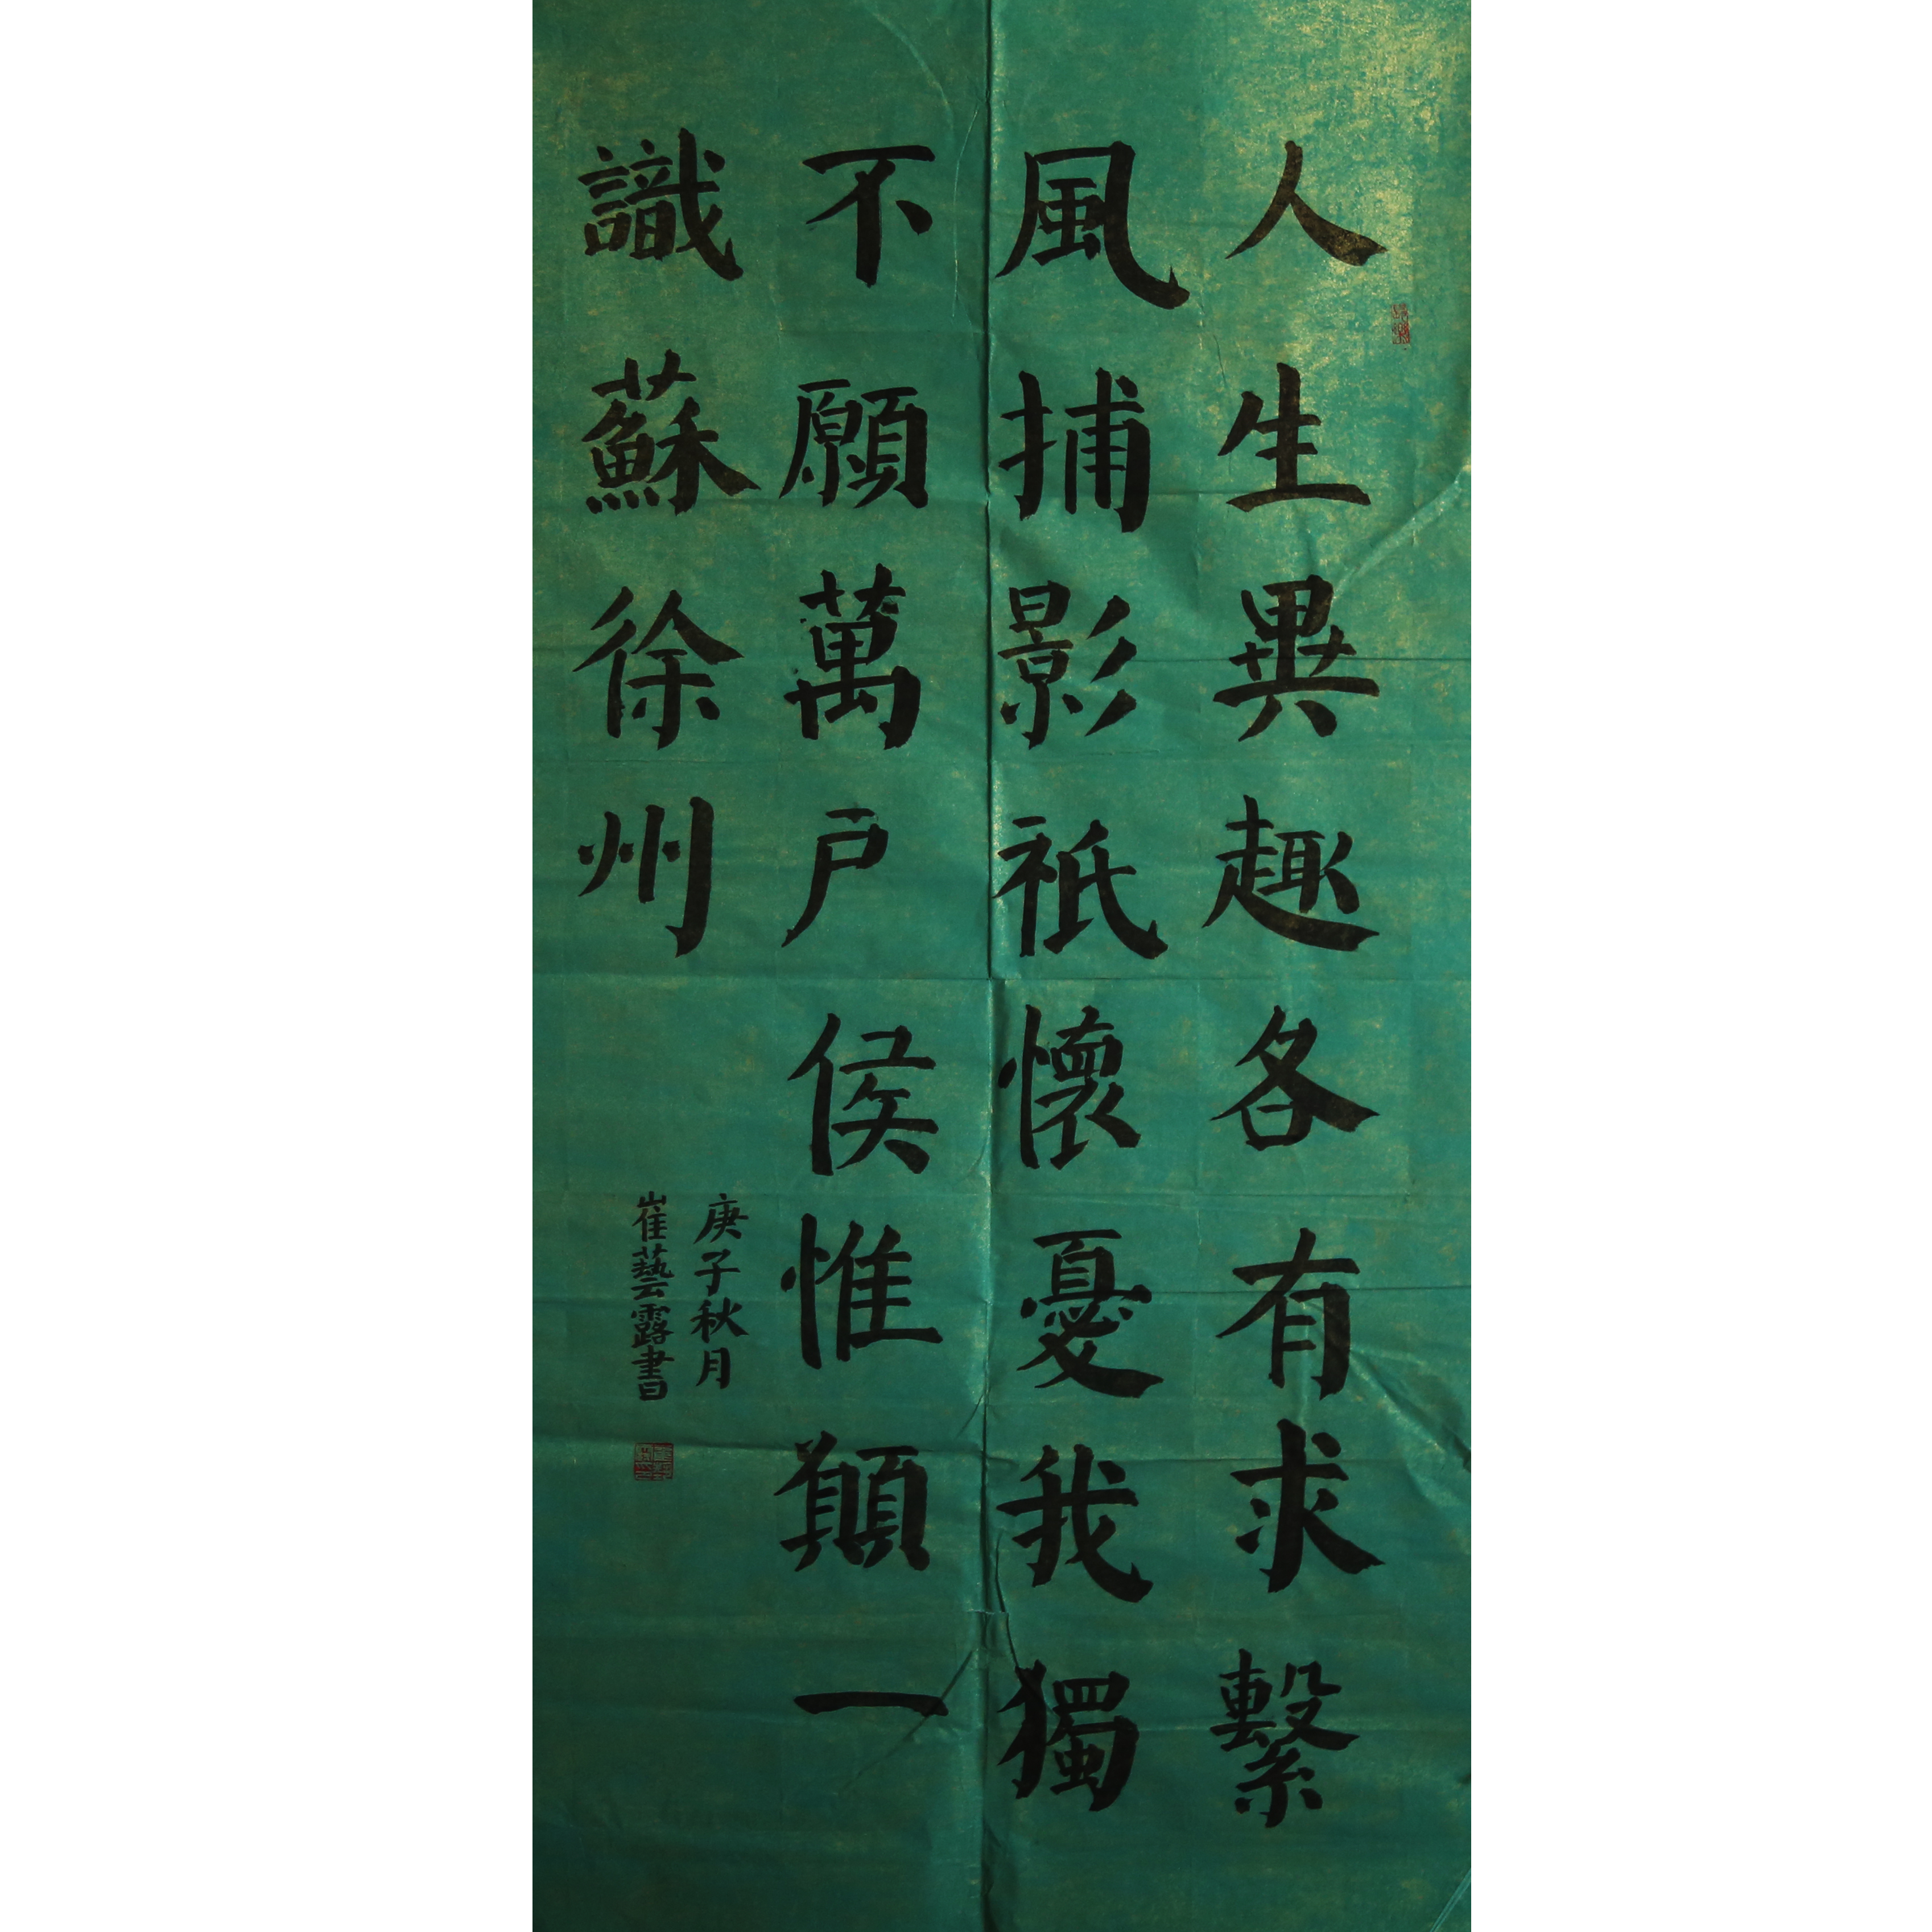 人生異趣各有求繫
風捕影祇懷憂我獨
不願萬戶侯惟願一
識蘇徐州
庚子秋月
崔藝露書